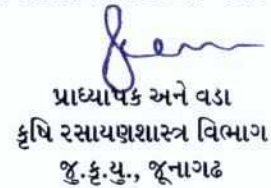 પ્રાધ્યાપક અને વડા
કૃષિ રસાયણશાસ્ત્ર વિભાગ
જુ.કૃ.યુ., જૂનાગઢ